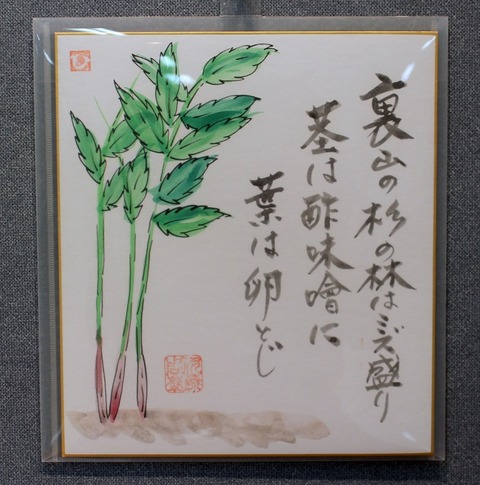 裏山の杉の林はミズ盛り
茎は酢味噌に
葉は卵とじ